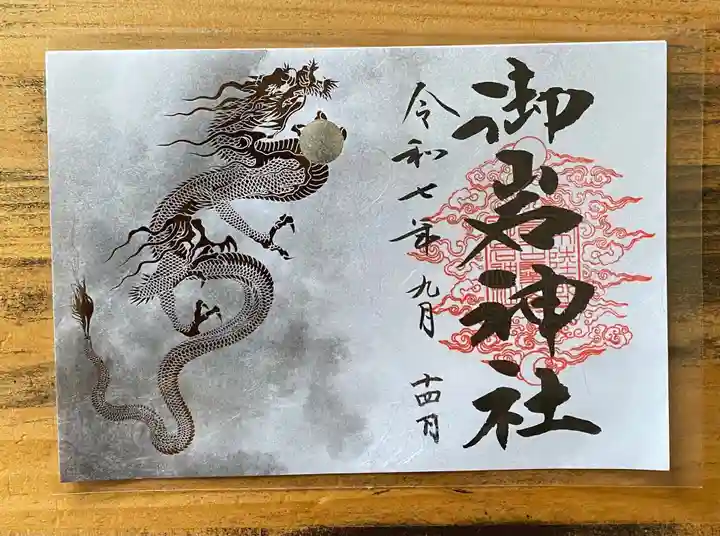 御岩神社
令和七年 九月 十四日